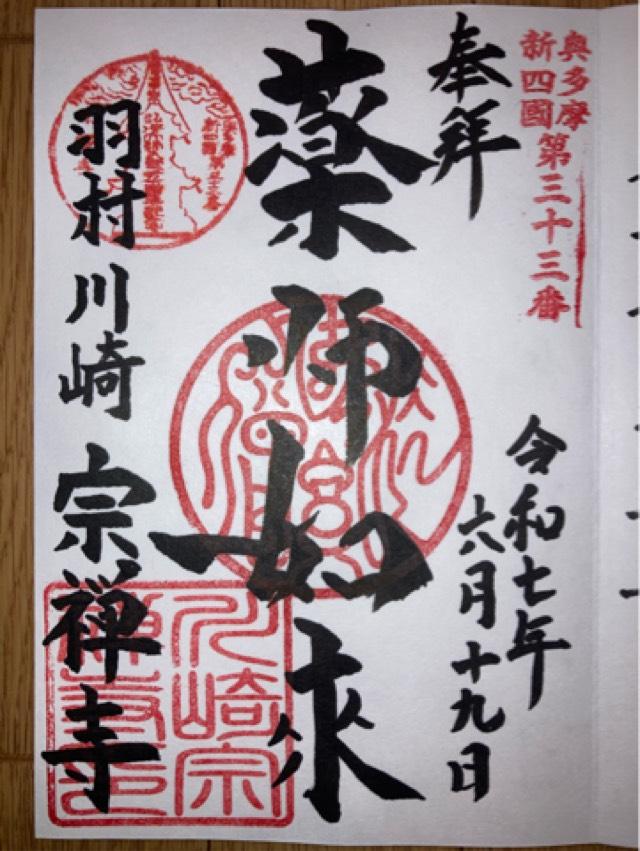 奥多摩
新四國第三十三番
奉拝
令和七年
六月十九日
薬师如來
羽村川崎宗禅寺
川崎宗
禅寺印